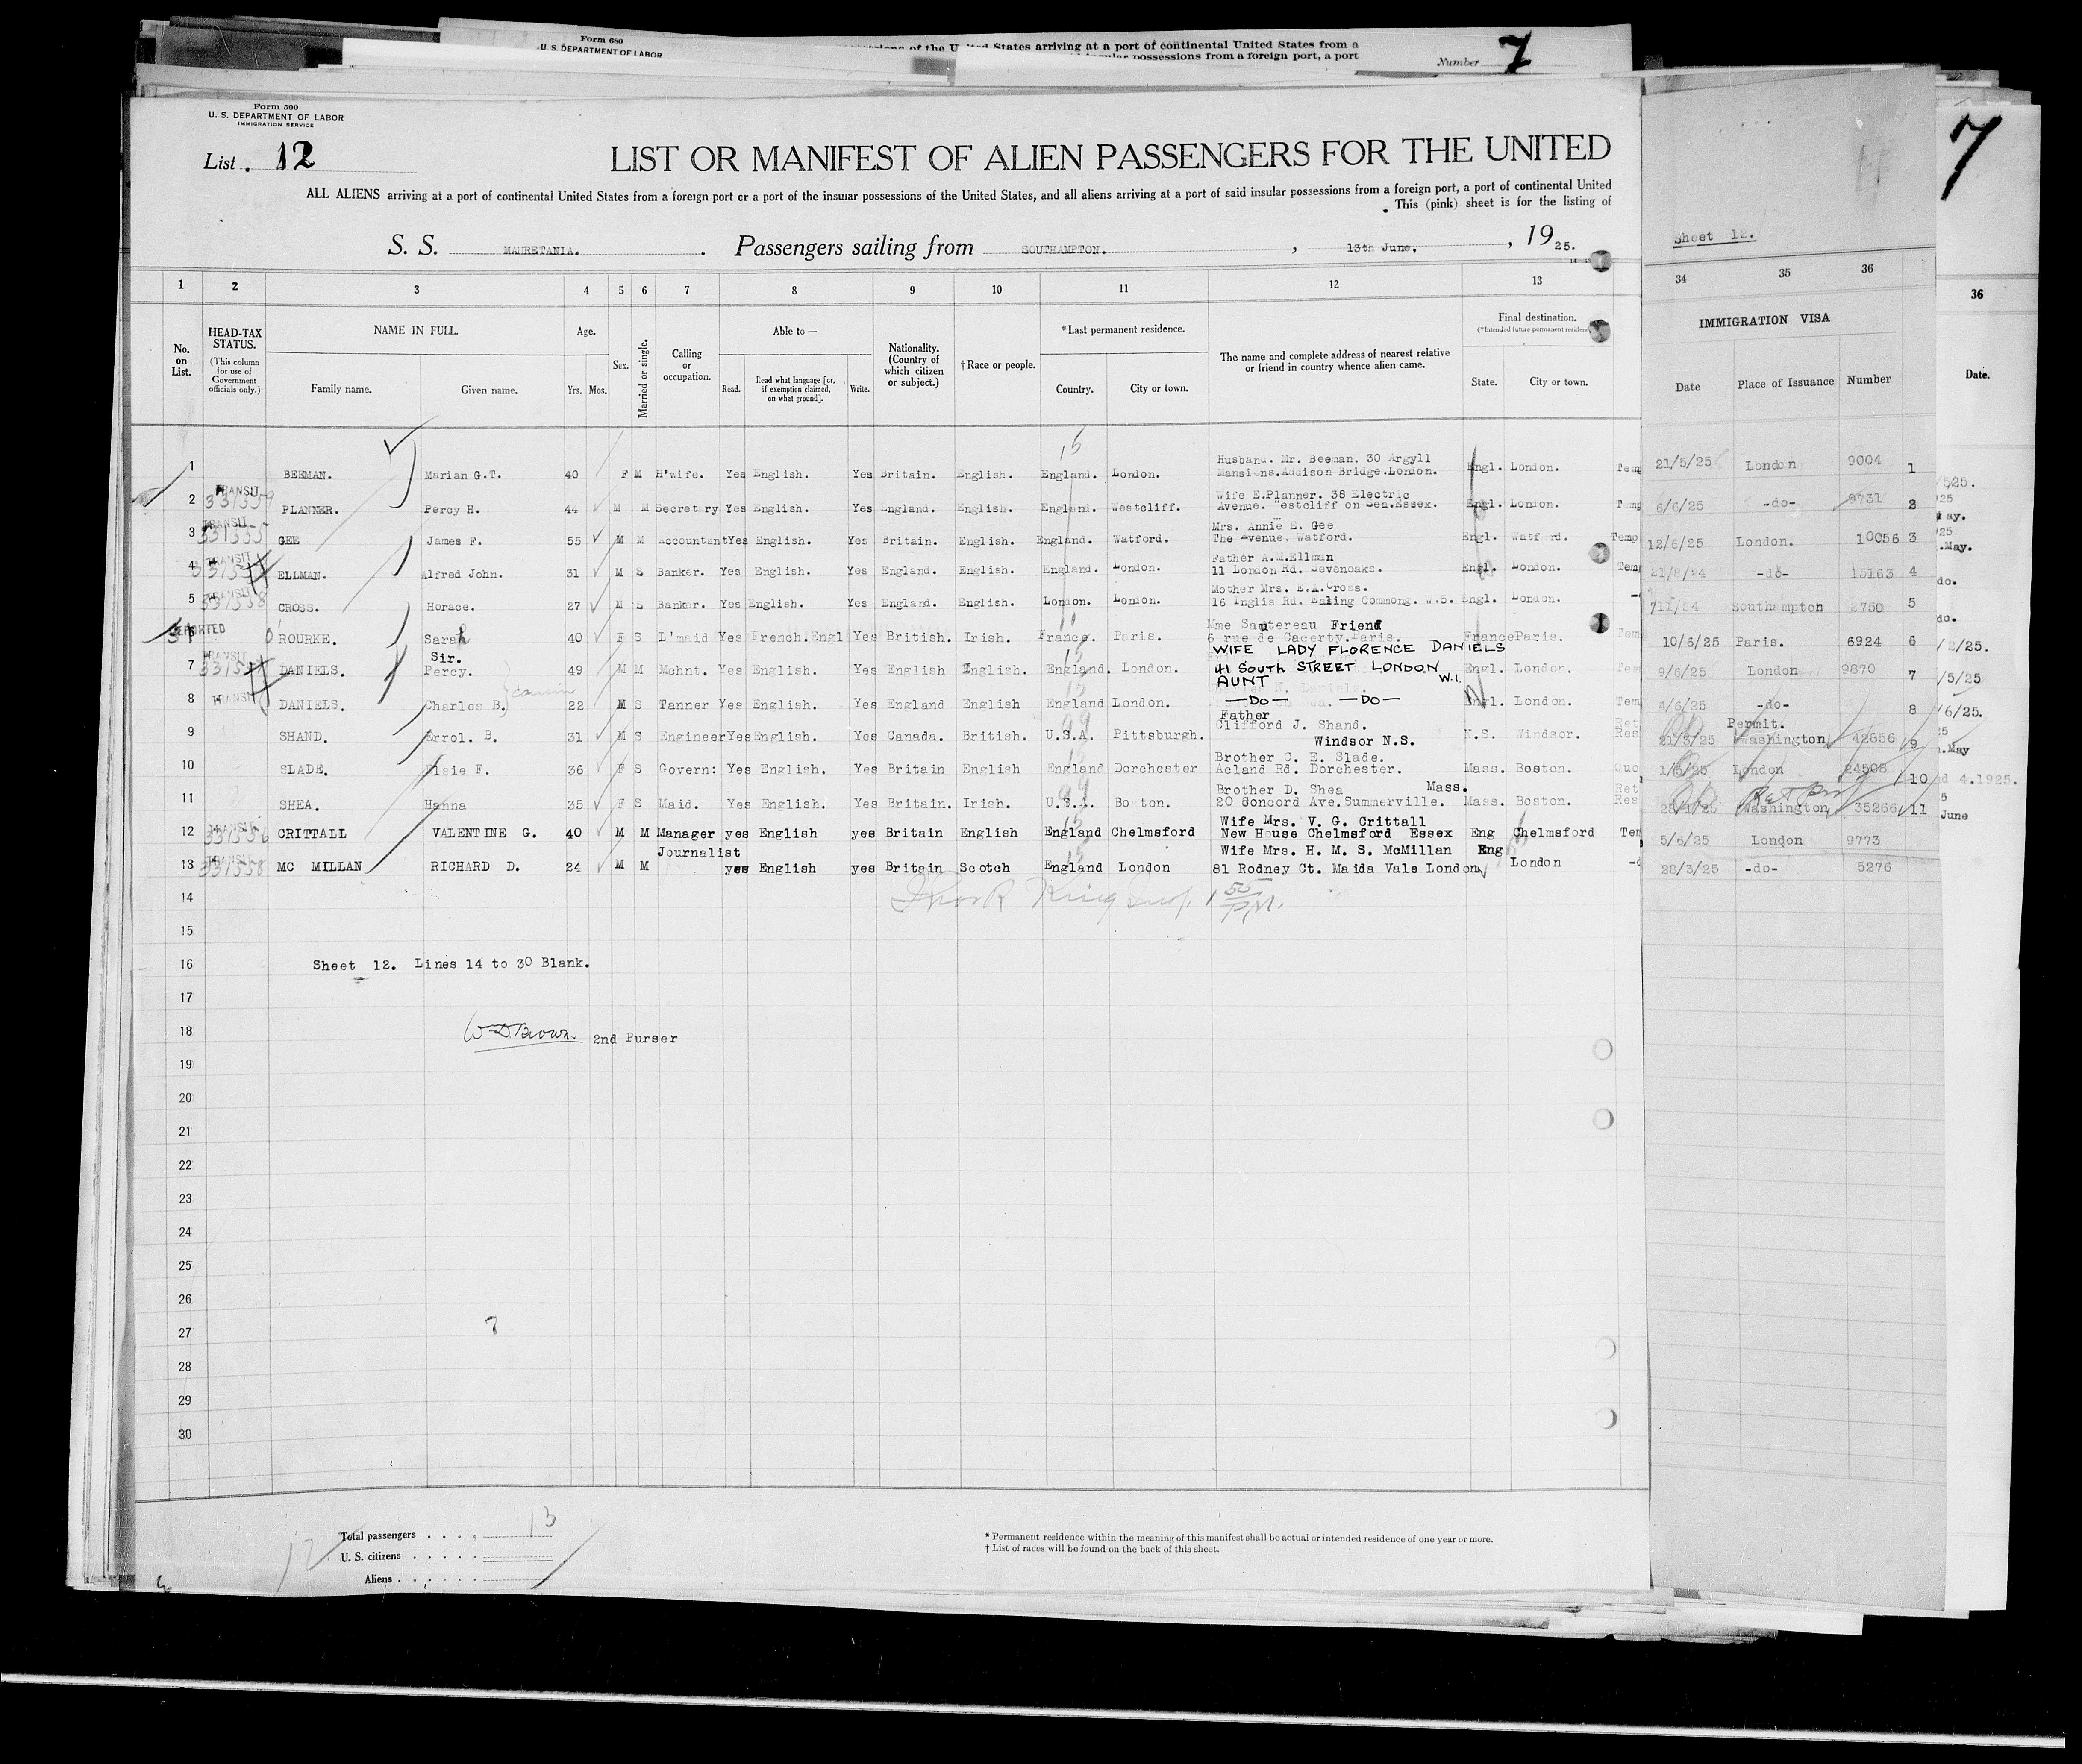 Form 680
U. S. DEPARTMENT OF LABOR
States arriving at a port of continental United States from a
possessions from a foreign port, a port
Number 7
Form 500
U. S. DEPARTMENT OF LABOR
IMMIGRATION SERVICE
List 12
LIST OR MANIFEST OF ALIEN PASSENGERS FOR THE UNITED
ALL ALIENS arriving at a port of continental United States from a foreign port or a port of the insular possessions of the United States, and all aliens arriving at a port of said insular possessions from a foreign port, a port of continental United
This (pink) sheet is for the listing of
S. S. MAURETANIA. Passengers sailing from SOUTHAMPTON. , 13th June, , 19 25.
Sheet 12.
7
1 2 3 4 5 6 7 8 9 10 11 12 13 34 35 36
36
No. on List.
HEAD-TAX STATUS.
(This column for use of Government officials only.)
NAME IN FULL.
Family name. Given name.
Age.
Yrs. Mos.
Sex.
Married or single.
Calling or occupation.
Able to—
Read. Read what language [or, if exemption claimed, on what ground]. Write.
Nationality. (Country of which citizen or subject.)
†Race or people.
*Last permanent residence.
Country. City or town.
The name and complete address of nearest relative or friend in country whence alien came.
Final destination.
(*Intended future permanent residence)
State. City or town.
IMMIGRATION VISA
Date Place of Issuance Number
Date.
Husband. Mr. Beeman. 30 Argyll
1 BEEMAN. Marian G.T. 40 F M H'wife. Yes English. Yes Britain. English. England. London. Mansions.Addison Bridge.London. Engl. London. 21/5/25 London 9004 1
Wife E.Planner. 38 Electric
2 TRANSIT 331559 PLANNER. Percy H. 44 M M Secretary Yes English. Yes England. English. England. Westcliff. Avenue. Westcliff on Sea.Essex. Engl. London. 6/6/25 -do- 9731 2
Mrs. Annie E. Gee
3 TRANSIT 331555 GEE James F. 55 M M Accountant Yes English. Yes Britain. English. England. Watford. The Avenue. Watford. Engl. Watford. Temp 12/6/25 London. 10056 3
Father A.M.Ellman
4 TRANSIT ELLMAN. Alfred John. 31 M S Banker. Yes English. Yes England. English. England. London. 11 London Rd. Sevenoaks. Engl. London. 21/8/24 -do- 15163 4
Mother Mrs. E.A.Cross.
5 TRANSIT CROSS. Horace. 27 M S Banker. Yes English. Yes England. English. London. London. 16 Inglis Rd. Ealing Commong. W.5. Engl. London. Southampton 2750 5
Mme Sautereau Friend
6 O'ROURKE. Sarah 40 F S L'maid Yes French.Engl Yes British. Irish. France. Paris. 6 rue de Cagerty.Paris. France Paris. 10/6/25 Paris. 6924 6
Sir. WIFE LADY FLORENCE DANIELS
7 TRANSIT DANIELS. Percy. 49 M M Mchnt. Yes English. Yes English English. England. London. 41 SOUTH STREET LONDON W.1. Engl. London. 9/6/25 London 9870 7
AUNT
8 TRANSIT DANIELS. Charles B. 22 M S Tanner Yes English. Yes England English England London. —DO— —DO— Engl. London. 4/6/25 -do- 8
Father Permit.
Clifford J. Shand.
9 SHAND. Errol. B. 31 M S Engineer Yes English. Yes Canada. British. U.S.A. Pittsburgh. Windsor N.S. N.S. Windsor. 21/3/25 Washington 42856 9
Brother C. E. Slade.
10 SLADE. Elsie F. 36 F S Govern: Yes English. Yes Britain English England Dorchester Acland Rd. Dorchester. Mass. Boston. 1/5/25 London 24508 10
Brother D. Shea Mass.
11 SHEA. Hanna 35 F S Maid. Yes English. Yes Britain. Irish. U.S.A. Boston. 20 Concord Ave.Summerville. Mass. Boston. Washington 35266 11
Wife Mrs. V. G. Crittall
12 TRANSIT 331556 CRITTALL VALENTINE G. 40 M M Manager yes English yes Britain English England Chelmsford New House Chelmsford Essex Eng Chelmsford 5/6/25 London 9773
Journalist Wife Mrs. H. M. S. McMillan Eng
13 TRANSIT 331558 MC MILLAN RICHARD D. 24 M M yes English yes Britain Scotch England London 81 Rodney Ct. Maida Vale London London 28/3/25 -do- 5276
14
15
16 Sheet 12. Lines 14 to 30 Blank.
17
18 W D Brown. 2nd Purser
19
20
21
22
23
24
25
26
27 7
28
29
30
Total passengers 13
U. S. citizens
Aliens
12
* Permanent residence within the meaning of this manifest shall be actual or intended residence of one year or more.
† List of races will be found on the back of this sheet.